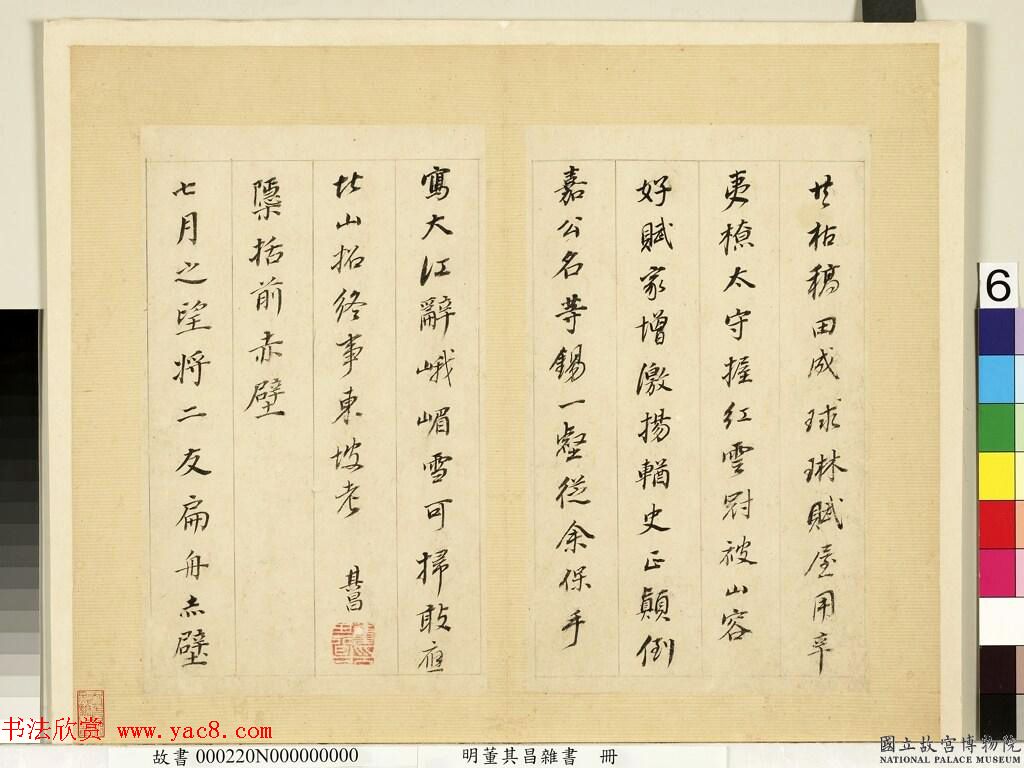 共枯槁田成球琳賦屋用卒
吏橑太守握紅雲尉被山容
好賦家增激揚輶史正顛倒
嘉公名等錫一壑從余保手
寫大江辭峨嵋雪可掃敢應
北山招終事東坡老
其昌
隱括前赤壁
七月之望將二友扁舟赤壁
6
书法欣赏 www.yac8.com
故書 000220N000000000
明董其昌雜書 冊
國立故宮博物院
NATIONAL PALACE MUSEUM